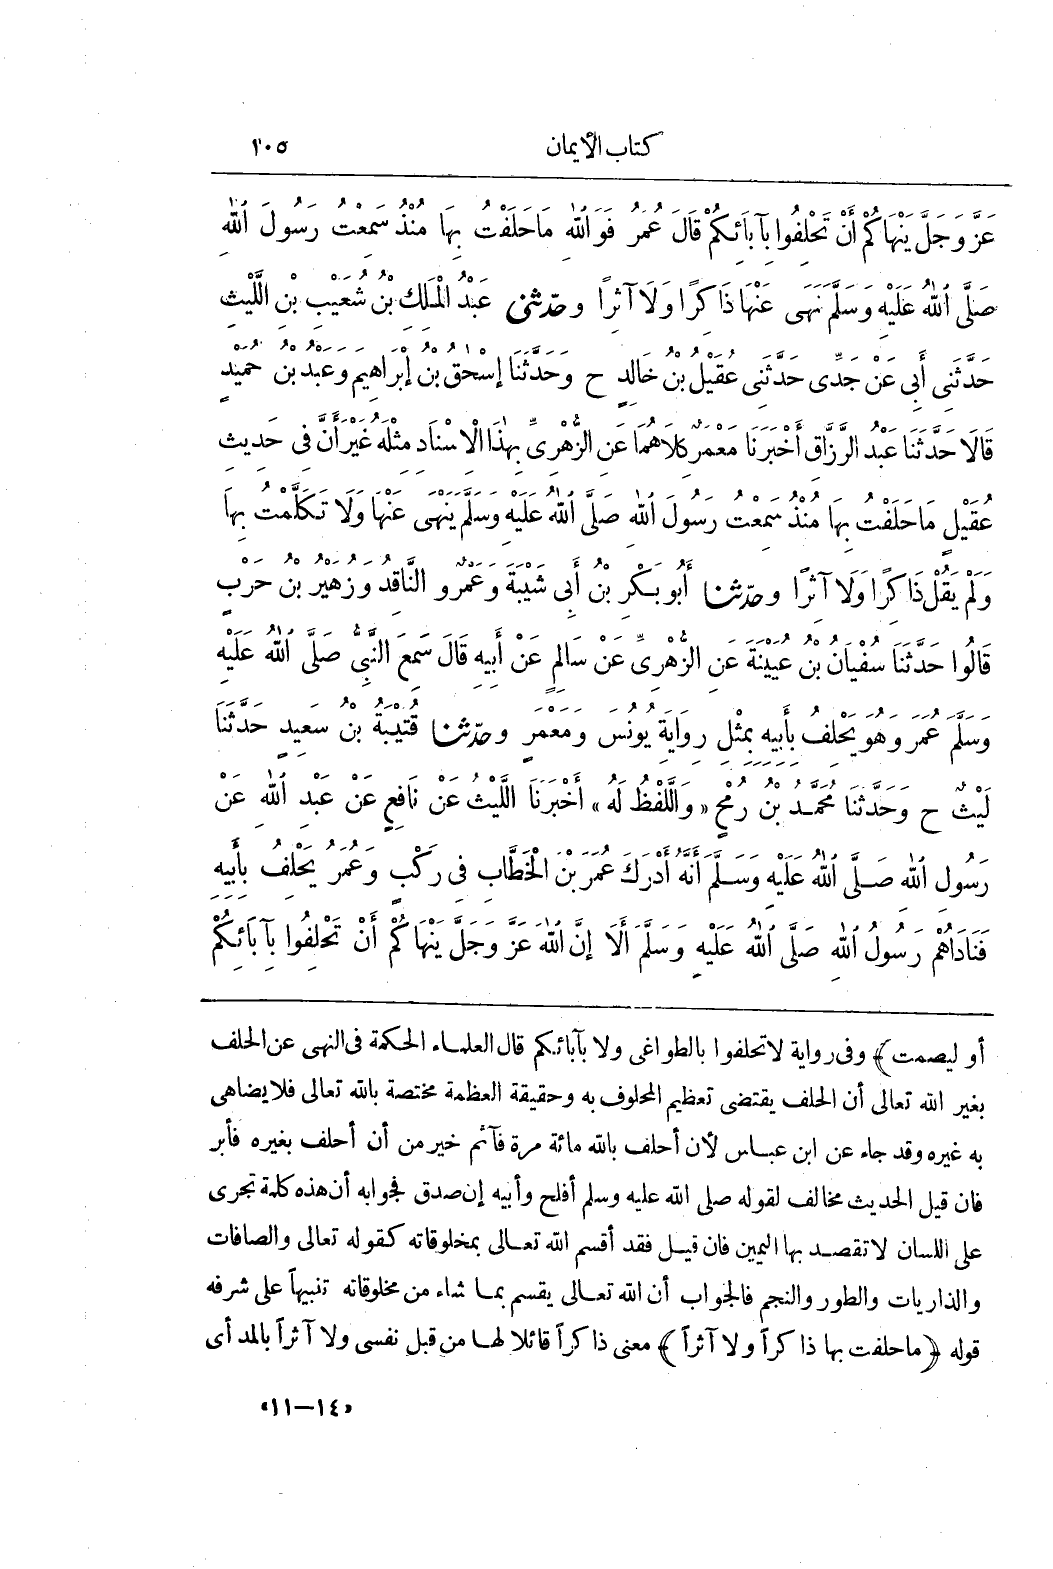 كتاب الأيمان ١٠٥
عَزَّ وَجَلَّ يَنْهَاكُمْ أَنْ تَحْلِفُوا بِآبَائِكُمْ قَالَ عُمَرُ فَوَاللهِ مَا حَلَفْتُ بِهَا مُنْذُ سَمِعْتُ رَسُولَ اللهِ
صَلَّى اللهُ عَلَيْهِ وَسَلَّمَ نَهَى عَنْهَا ذَاكِرًا وَلَا آثِرًا وحدّثنى عَبْدُ الْمَلِكِ بْنُ شُعَيْبِ بْنِ اللَّيْثِ
حَدَّثَنِى أَبِى عَنْ جَدِّى حَدَّثَنِى عُقَيْلُ بْنُ خَالِدٍ ح وَحَدَّثَنَا إِسْحٰقُ بْنُ إِبْرَاهِيمَ وَعَبْدُ بْنُ حُمَيْدٍ
قَالَا حَدَّثَنَا عَبْدُ الرَّزَّاقِ أَخْبَرَنَا مَعْمَرٌ كِلَاهُمَا عَنِ الزُّهْرِىِّ بِهٰذَا الْإِسْنَادِ مِثْلَهُ غَيْرَ أَنَّ فِى حَدِيثِ
عُقَيْلٍ مَا حَلَفْتُ بِهَا مُنْذُ سَمِعْتُ رَسُولَ اللهِ صَلَّى اللهُ عَلَيْهِ وَسَلَّمَ يَنْهَى عَنْهَا وَلَا تَكَلَّمْتُ بِهَا
وَلَمْ يَقُلْ ذَاكِرًا وَلَا آثِرًا وحدّثنا أَبُو بَكْرِ بْنُ أَبِى شَيْبَةَ وَعَمْرٌو النَّاقِدُ وَزُهَيْرُ بْنُ حَرْبٍ
قَالُوا حَدَّثَنَا سُفْيَانُ بْنُ عُيَيْنَةَ عَنِ الزُّهْرِىِّ عَنْ سَالِمٍ عَنْ أَبِيهِ قَالَ سَمِعَ النَّبِىُّ صَلَّى اللهُ عَلَيْهِ
وَسَلَّمَ عُمَرَ وَهُوَ يَحْلِفُ بِأَبِيهِ بِمِثْلِ رِوَايَةِ يُونُسَ وَمَعْمَرٍ وحدّثنا قُتَيْبَةُ بْنُ سَعِيدٍ حَدَّثَنَا
لَيْثٌ ح وَحَدَّثَنَا مُحَمَّدُ بْنُ رُمْحٍ «وَاللَّفْظُ لَهُ» أَخْبَرَنَا اللَّيْثُ عَنْ نَافِعٍ عَنْ عَبْدِ اللهِ عَنْ
رَسُولِ اللهِ صَلَّى اللهُ عَلَيْهِ وَسَلَّمَ أَنَّهُ أَدْرَكَ عُمَرَ بْنَ الْخَطَّابِ فِى رَكْبٍ وَعُمَرُ يَحْلِفُ بِأَبِيهِ
فَنَادَاهُمْ رَسُولُ اللهِ صَلَّى اللهُ عَلَيْهِ وَسَلَّمَ أَلَا إِنَّ اللهَ عَزَّ وَجَلَّ يَنْهَاكُمْ أَنْ تَحْلِفُوا بِآبَائِكُمْ
أو ليصمت﴾ وفى رواية لاتحلفوا بالطواغى ولا بآبائكم قال العلماء الحكمة فى النهى عن الحلف
بغير الله تعالى أن الحلف يقتضى تعظيم المحلوف به وحقيقة العظمة مختصة بالله تعالى فلا يضاهى
به غيره وقد جاء عن ابن عباس لأن أحلف بالله مائة مرة فآثم خير من أن أحلف بغيره فأبر
فان قيل الحديث مخالف لقوله صلى الله عليه وسلم أفلح وأبيه إن صدق فجوابه أن هذه كلمة تجرى
على اللسان لا تقصد بها اليمين فان قيل فقد أقسم الله تعالى بمخلوقاته كقوله تعالى والصافات
والذاريات والطور والنجم فالجواب أن الله تعالى يقسم بما شاء من مخلوقاته تنبيهاً على شرفه
قوله ﴿ما حلفت بها ذاكراً ولا آثراً﴾ معنى ذاكراً قائلا لها من قبل نفسى ولا آثراً بالمد أى
«١٤–١١»